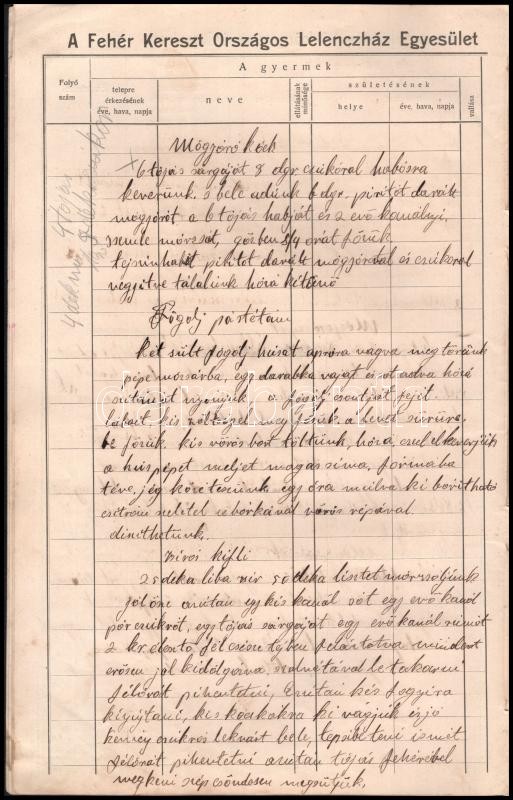 A Fehér Kereszt Országos Lelenczház Egyesület
A gyermek
Folyó szám
telepre érkezésének éve, hava, napja
neve
ellátásának minősége
születésének
helye
éve, hava, napja
vallása
Mogyoró koch
6 tojás sárgáját 8 dgr. czukoral habosra
keverünk, s bele adunk 6 dgr. piritot darált
mogyorót, a 6 tojás habját és 2 evő kanálnyi
semle morzsát, gőzben 3/4 orát főzük
tejszinhabot piritot darált mogyoróval és czukoral
vegyitve tálalunk hozá kitünő
Fogolj pástétom
Két sült fogolj húsát apróra vagva meg törünk
pépé mozsárba, egy darabka vajat és
be főzük. kis vörös bort töltünk, hozá, ezel elkeverjük
a húspépet meljet magas sima, formaba
téve, jég közé teszünk egy óra mulva ki borithato
citrom szelettel uborkával vörös répával
diszithetünk.
Zsiros kifli
25 deka liba zsir 50 deka lisztet morzsoljunk
jol össze azután egy kis kanál sót egy evő kanál
por czukrot, egy tojás sárgáját egy evő kanál rumot
2 kr élesztő fél csésze tejben felázlatva mindezt
erősen jol kidolgozva szalvétával letakarni
félórát pihentetni, Ezután kés fogyira
kinyujtani, kis kockákra ki vagjuk és jo
kemény czukros lekvárt bele, tepsibe teni ismét
félórát pihentetni azután tojás fehérével
megkeni szép csöndesen megsütjük.